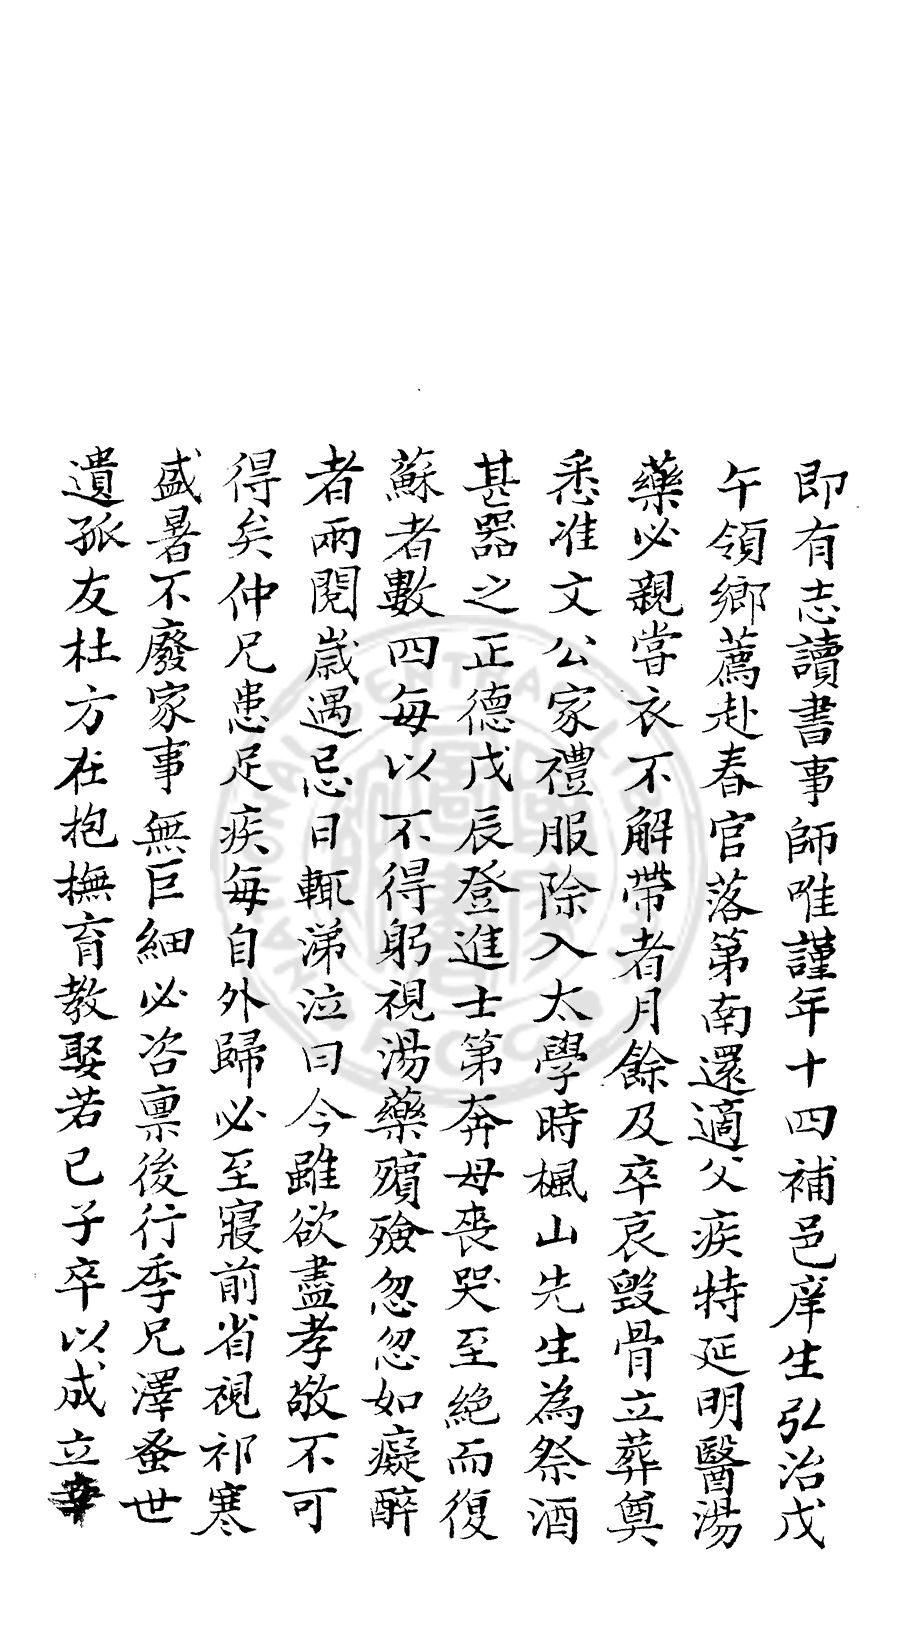 即有志讀書事師唯謹年十四補邑庠生弘治戊
午領鄉薦赴春官落第南還適父疾特延明醫湯
藥必親嘗衣不解帶者月餘及卒哀毀骨立葬奠
悉准文公家禮服除入太學時楓山先生為祭酒
甚器之正德戊辰登進士第奔母喪哭至絕而復
蘇者數四每以不得躬視湯藥殯殮忽忽如癡醉
者兩閱歲遇忌日輒涕泣曰今雖欲盡孝敬不可
得矣仲兄患足疾每自外歸必至寢前省視祁寒
盛暑不廢家事無巨細必咨稟後行季兄澤蚤世
遺孤友杜方在抱撫育教娶若已子卒以成立